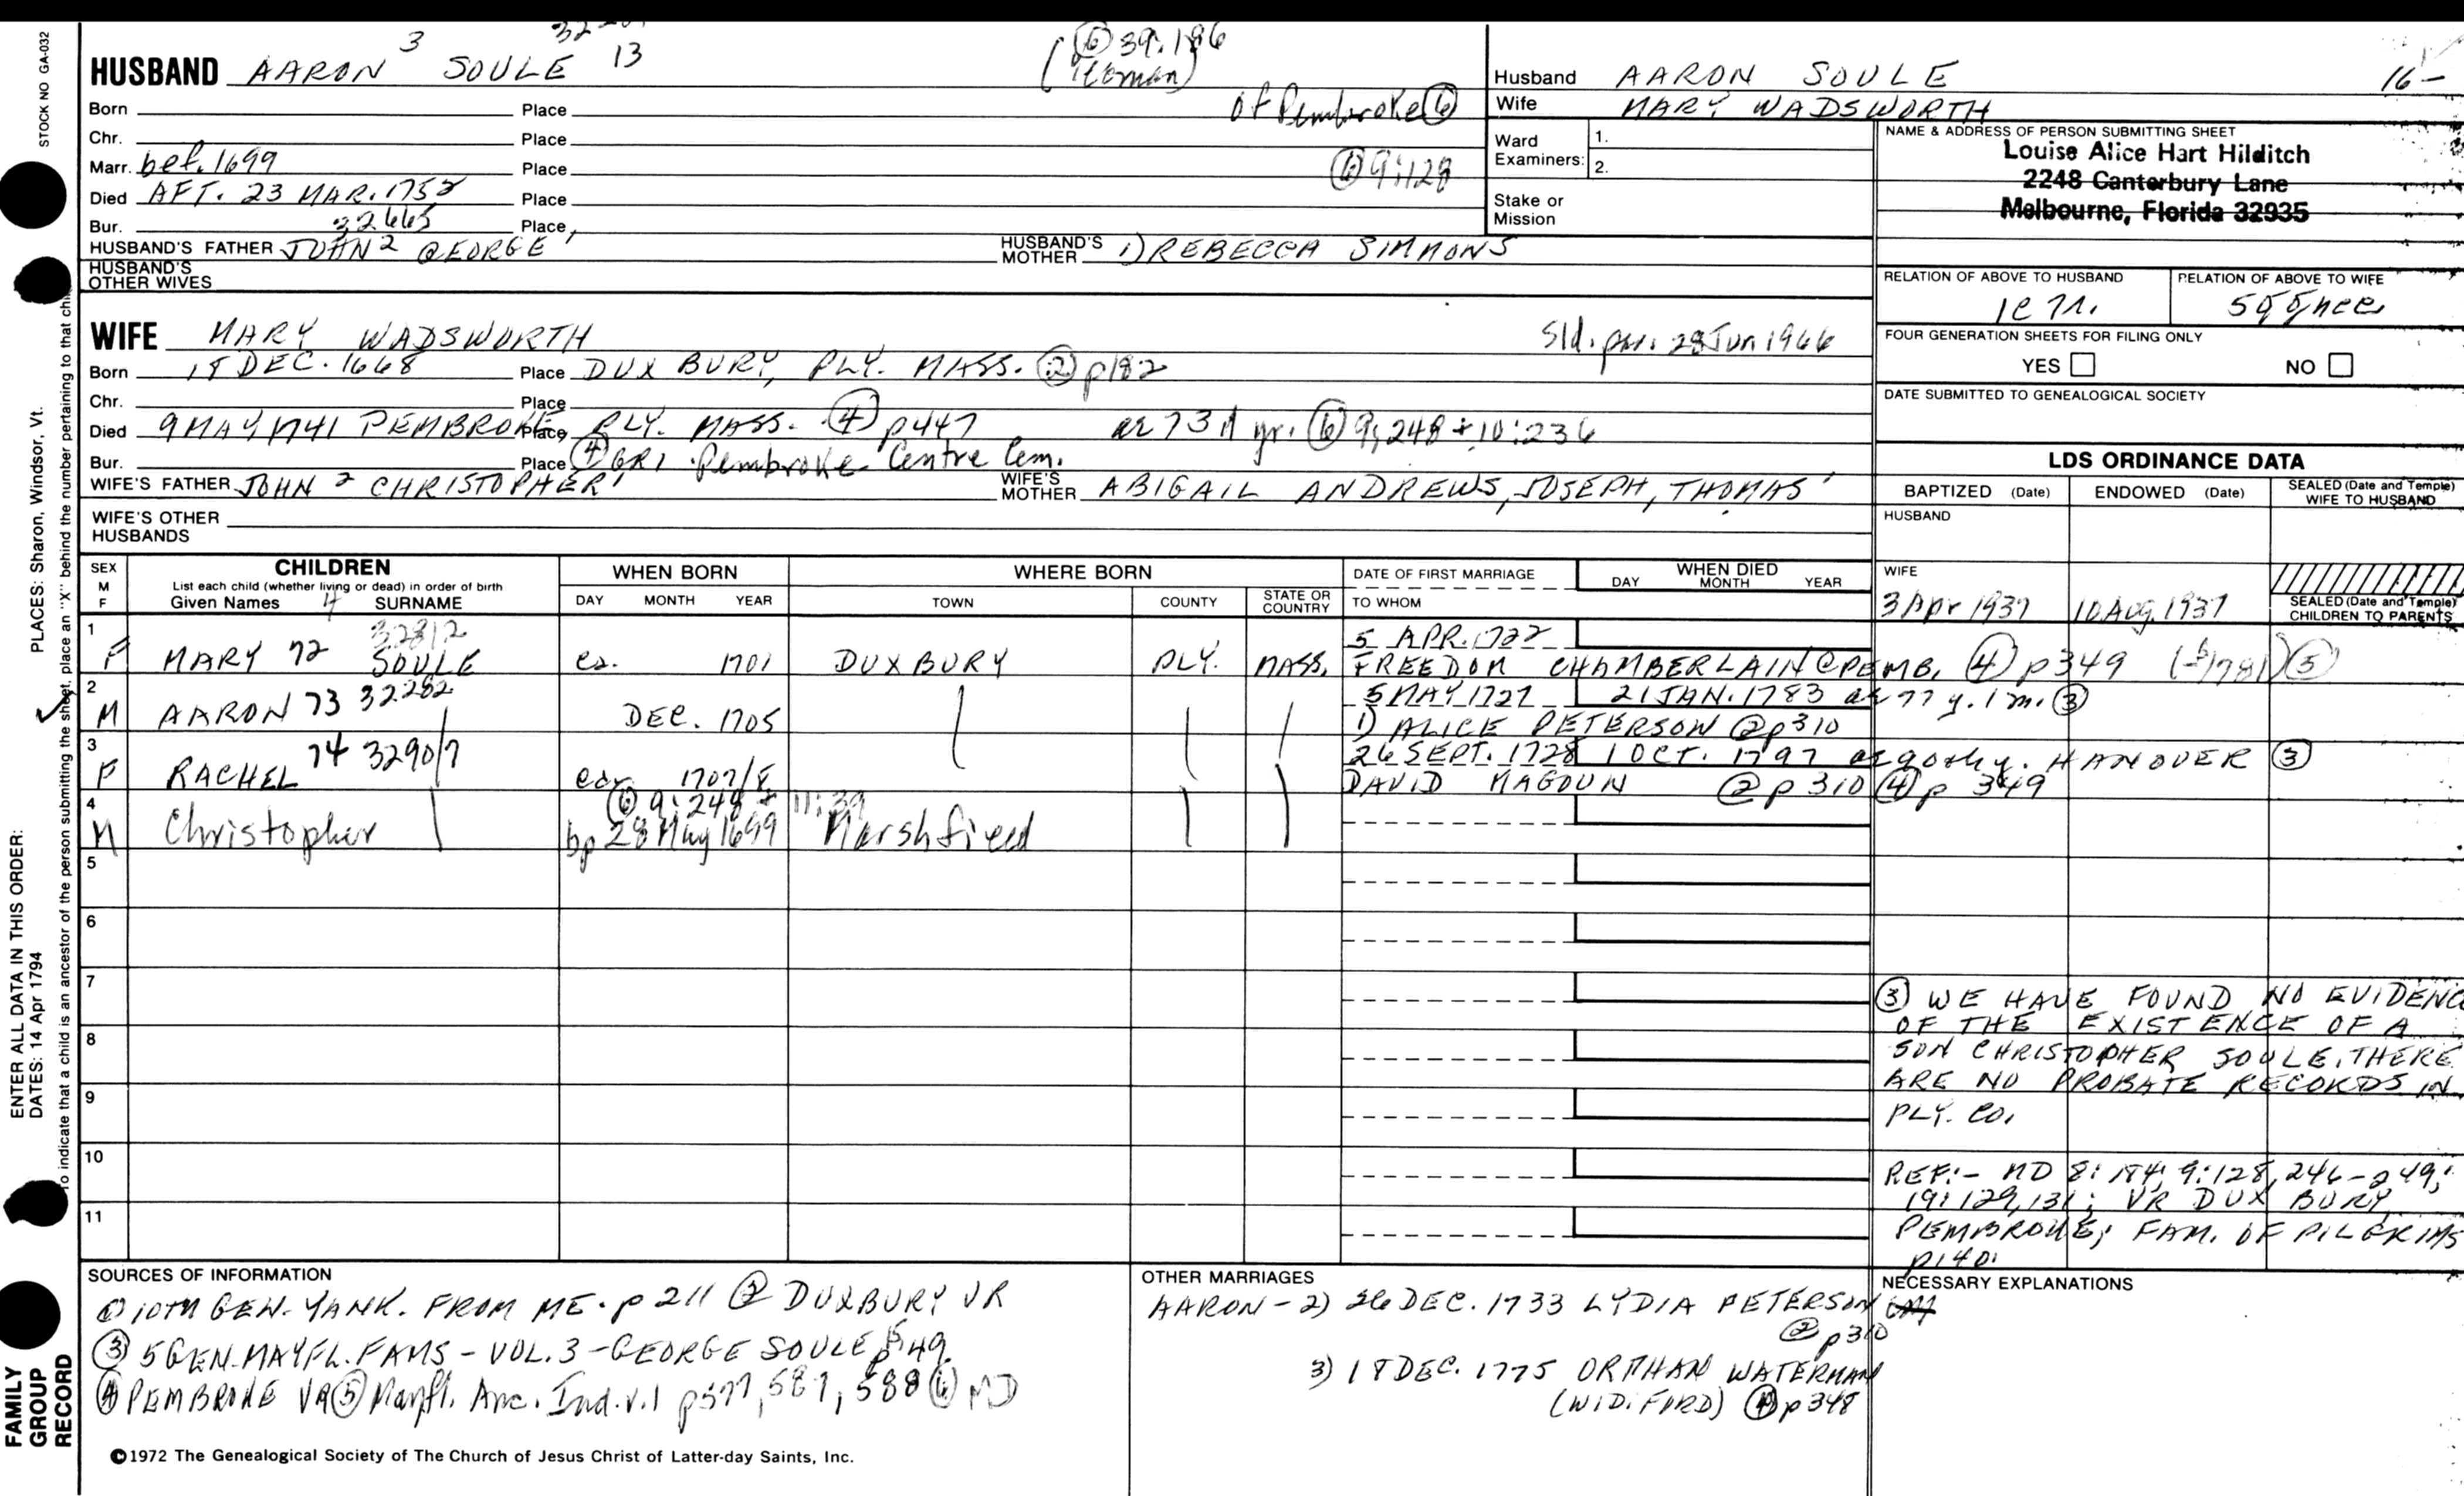 STOCK NO GA-032
PLACES: Sharon, Windsor, Vt.
ENTER ALL DATA IN THIS ORDER:
DATES: 14 Apr 1794
To indicate that a child is an ancestor of the person submitting the sheet, place an "X" behind the number pertaining to that chi
FAMILY GROUP RECORD
HUSBAND AARON 3 SOULE 13
(6) 39:186
Born Place of Pembroke (6)
Chr. Place
Marr. bef. 1699 Place (6) 9:128
Died AFT. 23 MAR. 1752 Place
Bur. 32665 Place
HUSBAND'S FATHER JOHN 2 GEORGE 1 HUSBAND'S MOTHER 1) REBECCA SIMMONS
HUSBAND'S OTHER WIVES
WIFE MARY WADSWORTH Sld. par. 28 Jun 1966
Born 18 DEC. 1668 Place DUXBURY, PLY. MASS. (2) p182
Chr. Place
Died 9 MAY 1741 PEMBROKE, Place PLY. MASS. (4) p447 ae 73d yr. (6) 9:248 + 10:236
Bur. Place (4) GR1 Pembroke Centre Cem.
WIFE'S FATHER JOHN 2 CHRISTOPHER 1 WIFE'S MOTHER ABIGAIL ANDREWS, JOSEPH, THOMAS 1
WIFE'S OTHER HUSBANDS
Husband AARON SOULE 16-
Wife MARY WADSWORTH
Ward Examiners: 1.
2.
Stake or Mission
NAME & ADDRESS OF PERSON SUBMITTING SHEET
Louise Alice Hart Hilditch
2248 Canterbury Lane
Melbourne, Florida 32935
RELATION OF ABOVE TO HUSBAND RELATION OF ABOVE TO WIFE
FOUR GENERATION SHEETS FOR FILING ONLY
YES NO
DATE SUBMITTED TO GENEALOGICAL SOCIETY
LDS ORDINANCE DATA
BAPTIZED (Date) ENDOWED (Date) SEALED (Date and Temple) WIFE TO HUSBAND
HUSBAND
WIFE
3 Apr 1937 10 Aug 1937
SEALED (Date and Temple) CHILDREN TO PARENTS
SEX M F CHILDREN WHEN BORN WHERE BORN DATE OF FIRST MARRIAGE WHEN DIED
List each child (whether living or dead) in order of birth
Given Names 4 SURNAME DAY MONTH YEAR TOWN COUNTY STATE OR COUNTRY TO WHOM DAY MONTH YEAR
1 32812 5 APR. 1722
F MARY 72 SOULE ca. 1701 DUXBURY PLY. MASS. FREEDOM CHAMBERLAIN @ PEMB. (4) p349 (5)
2 5 MAY 1727 21 JAN. 1783 ae 77 y. 1 m. (3)
M AARON 73 32282 DEC. 1705 1) ALICE PETERSON (2) p310
3 26 SEPT. 1728 1 OCT. 1797 HANOVER (3)
F RACHEL 74 3290/7 ca. 1707/8 DAVID MAGOUN (2) p310 (4) p 349
4 (6) 9:248 + 11:39
M Christopher bp 28 May 1699 Marshfield
5
6
7
8
9
10
11
(3) WE HAVE FOUND NO EVIDENC
OF THE EXISTENCE OF A
SON CHRISTOPHER SOULE. THERE
ARE NO PROBATE RECORDS IN
PLY. CO.
REF:- MD 8:184; 9:128, 246-249;
19:129,131; VR DUXBURY,
PEMBROKE; FAM. OF PILGRIMS
p140.
SOURCES OF INFORMATION
(1) 10TH GEN. YANK. FROM ME. p 211 (2) DUXBURY VR
(3) 5 GEN. MAYFL. FAMS - VOL. 3 - GEORGE SOULE p 49
(4) PEMBROKE VR (5) Mayfl. Anc. Ind. v.1 p577, 587, 588 (6) MD
OTHER MARRIAGES
AARON - 2) 26 DEC. 1733 LYDIA PETERSON
(2) p310
3) 18 DEC. 1775 ORPHAN WATERMAN
(WID. FORD) (4) p348
NECESSARY EXPLANATIONS
©1972 The Genealogical Society of The Church of Jesus Christ of Latter-day Saints, Inc.